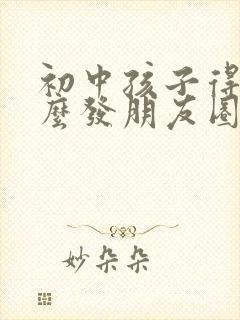 初中孩子得
麼發朋友圈
妙朵朵